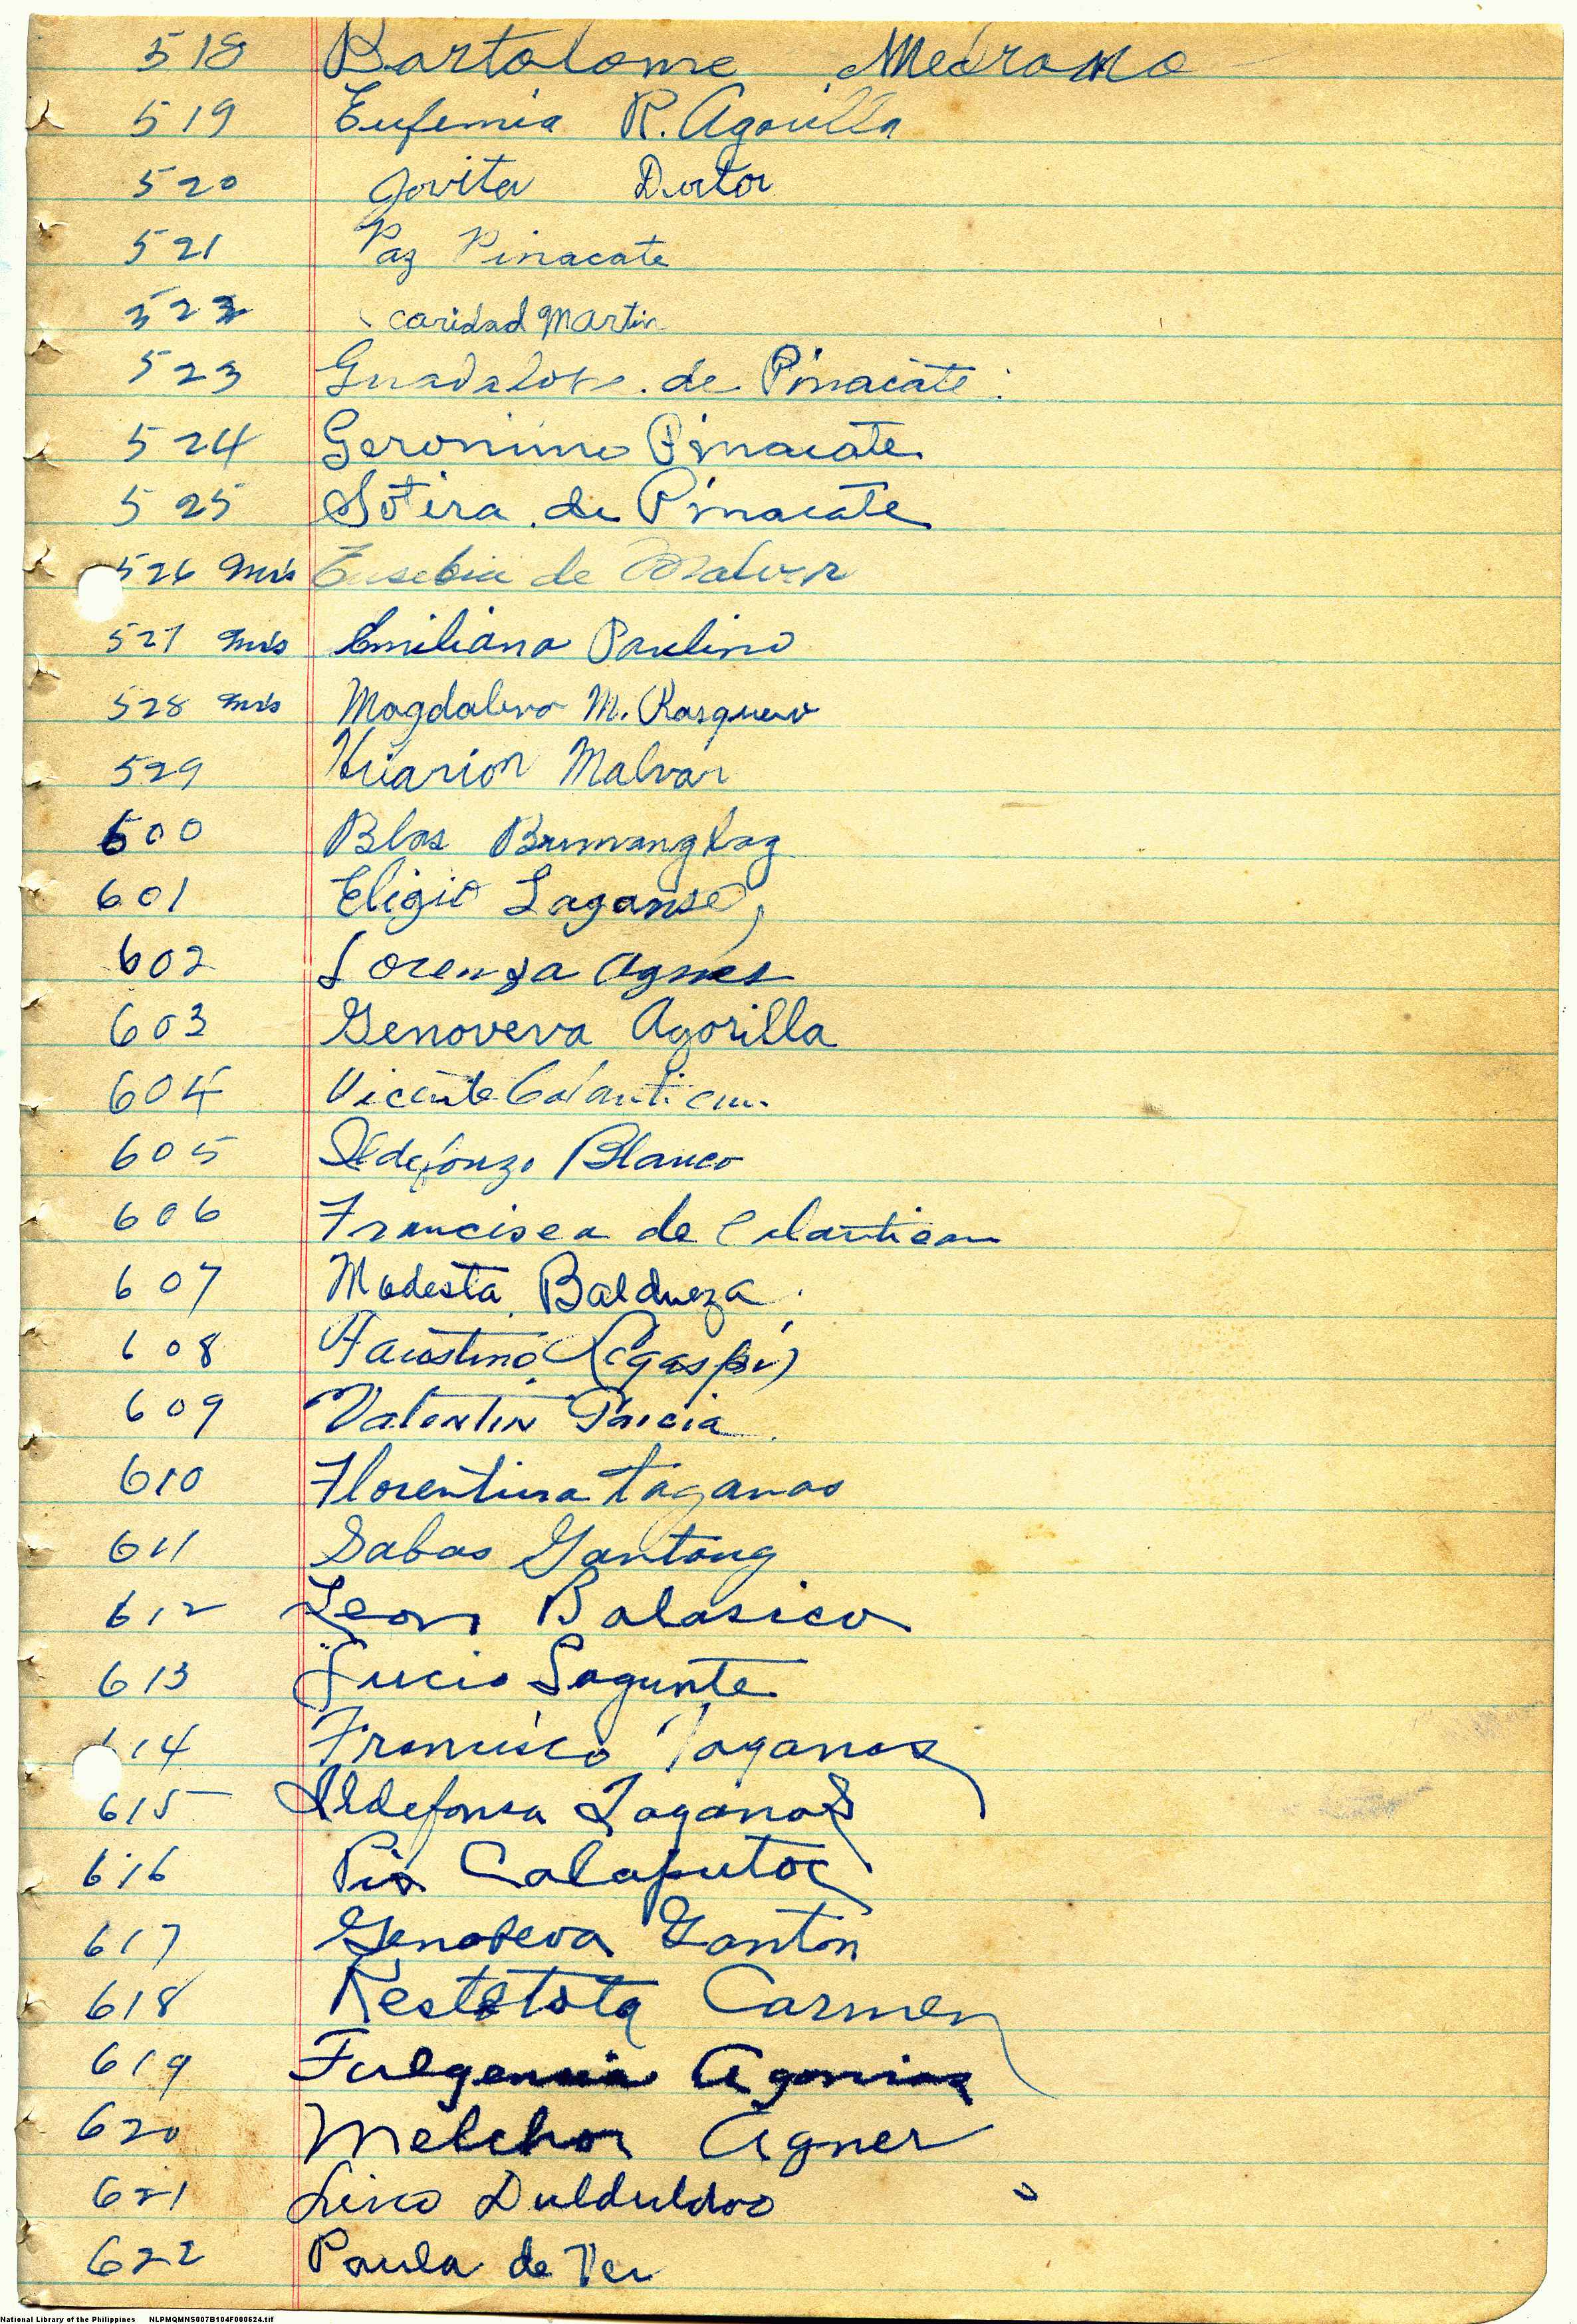 518 Bartolome Medrano
519 Eufemia R. Agorilla
520 Jovita Dator
521 Paz Pinacate
522 Caridad Martin
523 Guadalope de Pinacate
524 Geronimo Pinacate
525 Sotera de Pinacate
526 Mrs Eusebia de Malvar
527 Mrs Emiliana Paulino
528 Mrs Magdalena M.
529 Hilarion Malvar
600 Blas Bumanglag
601 Eligio
602 Lorenza Agnes
603 Genoveva Agorilla
604 Vicente Colantican
605 Ildefonzo Blanco
606 Francisca de Colantican
607 Modesta Baldueza
608 Faustino Legaspi
609 Valentin Garcia
610 Florentina Taganas
611 Sabas Gantong
612 Leon Balasico
613 Lucio Lagunte
614 Francisco Taganas
615 Ildefonsa Taganas
616 Pio Calaputoc
617 Genoveva Ganton
618 Restetota Carmen
619 Fulgencia
620 Melchor Agner
621 Dulduldao
622 Paula de Ver
National Library of the Philippines NLPMQMNS007B104F000624.tif